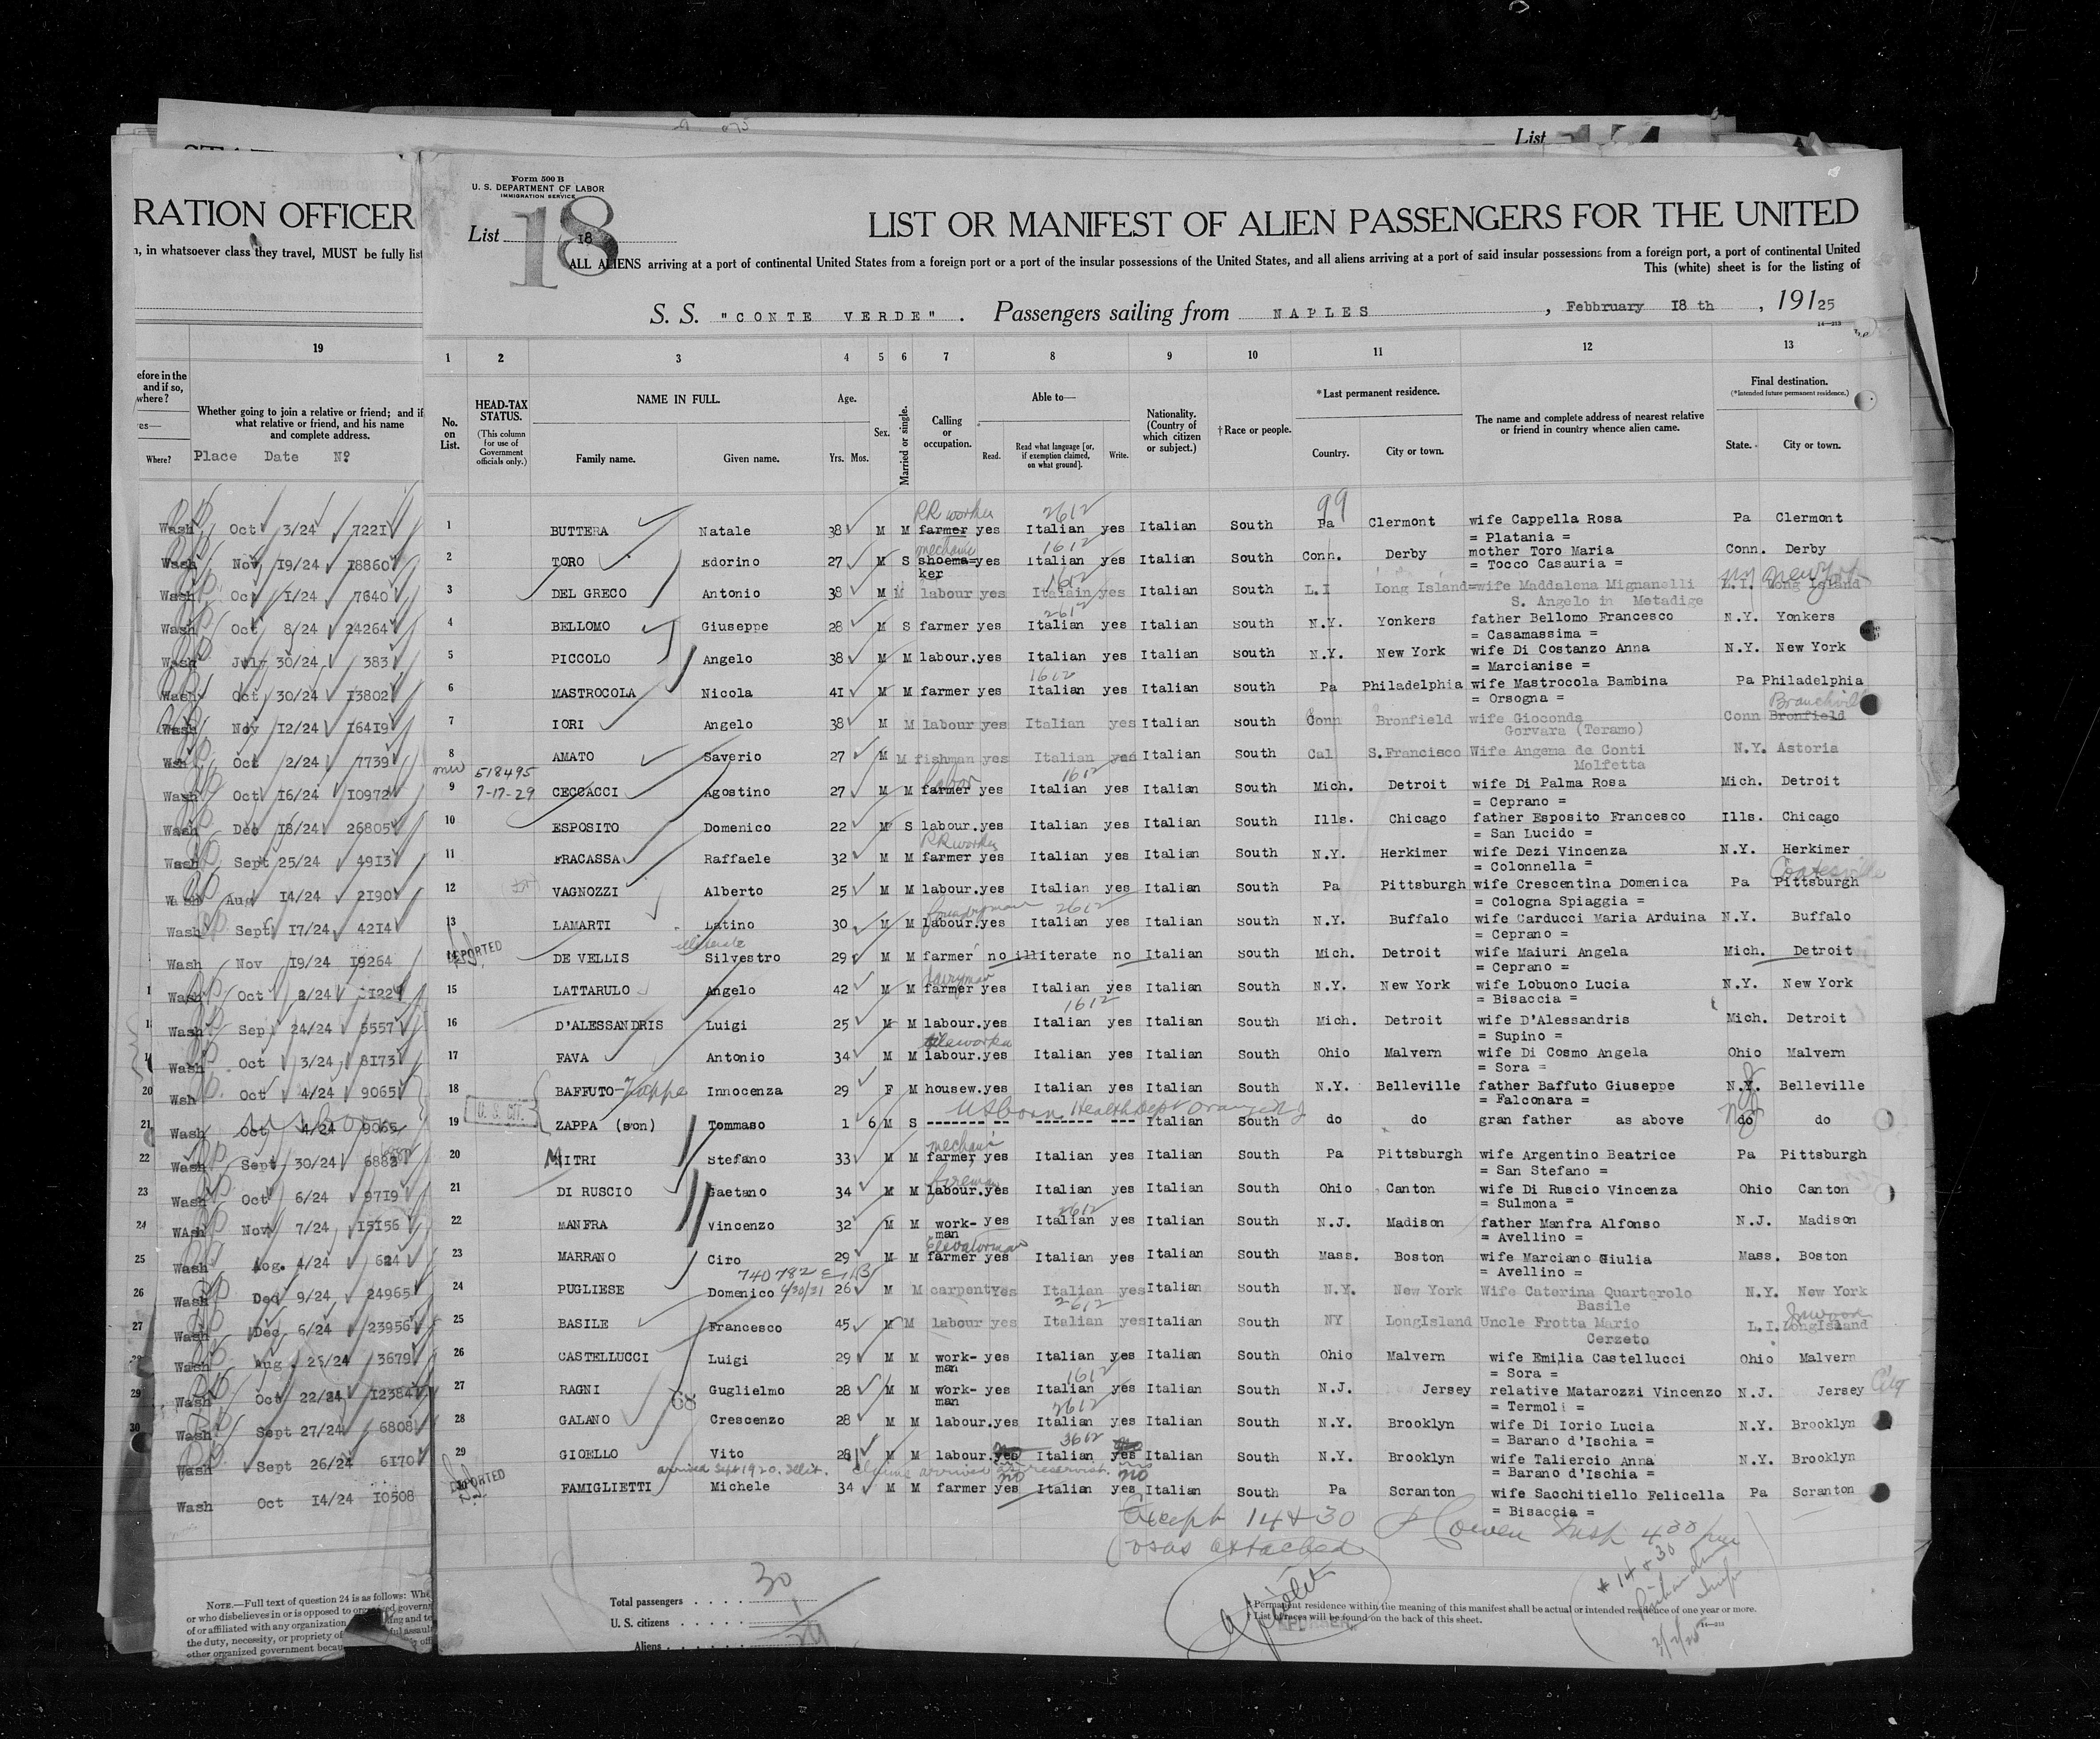 List
RATION OFFICER
n, in whatsoever class they travel, MUST be fully list
19
efore in the
and if so,
where?
Whether going to join a relative or friend; and if
what relative or friend, and his name
and complete address.
Where? Place Date Nº
Wash Oct 3/24 7221
Wash Nov 19/24 18860
Wash Oct 1/24 7640
Wash Oct 8/24 24264
Wash July 30/24 383
Wash Oct 30/24 13802
Wash Nov 12/24 16419
Wsh Oct 2/24 7739
Wash Oct 16/24 10972
Wash Dec 18/24 26805
Wash Sept 25/24 4913
Wash Aug 14/24 2190
Wash Sept 17/24 4214
Wash Nov 19/24 19264
Wash Oct 2/24
Wash Sep 24/24 5557
Wash Oct 3/24 8173
20 Wsh Oct 4/24 9065
21 Wash Oct 4/24 9065
22 Wash Sept 30/24
23 Wash Oct 6/24 9719
24 WAsh Nov 7/24 15156
25 Wash Aog. 4/24 624
26 Wash Dec 9/24 24965
27 Wash Dec 6/24 23956
28 Wash Aug. 25/24 3679
29 Wash Oct 22/24 12384
30 Wash Sept 27/24 6808
Wash Sept 26/24 6170
Wash Oct 14/24 10508
NOTE.—Full text of question 24 is as follows: Whe
or who disbelieves in or is opposed to
of or affiliated with any organization
the duty, necessity, or propriety of
other organized government becau
Form 500 B
U. S. DEPARTMENT OF LABOR
IMMIGRATION SERVICE
List 18
18
LIST OR MANIFEST OF ALIEN PASSENGERS FOR THE UNITED
ALL ALIENS arriving at a port of continental United States from a foreign port or a part of the insular possessions of the United States, and all aliens arriving at a port of said insular possessions from a foreign port, a port of continental United
This (white) sheet is for the listing of
S. S. "CONTE VERDE". Passengers sailing from NAPLES, Febbruary 18 th, 19125
1 2 3 4 5 6 7 8 9 10 11 12 13
No. on List.
HEAD-TAX STATUS.
(This column for use of Government officials only.)
NAME IN FULL.
Family name. Given name.
Age.
Yrs. Mos.
Sex.
Married or single.
Calling or occupation.
Able to—
Read. Read what language [or, if exemption claimed, on what ground]. Write.
Nationality. (Country of which citizen or subject.)
†Race or people.
*Last permanent residence.
Country. City or town.
The name and complete address of nearest relative or friend in country whence alien came.
Final destination.
(*Intended future permanent residence.)
State. City or town.
RR worker 2612 99
1 BUTTERA Natale 38 M M farmer yes Italian yes Italian South Pa Clermont wife Cappella Rosa Pa Clermont
= Platania =
mechanic 1612
2 TORO Edorino 27 M S shoema= yes Italian yes Italian South Conn. Derby mother Toro Maria Conn. Derby
ker = Tocco Casauria =
1612 NY New York
3 DEL GRECO Antonio 38 M M labour yes Italain yes Italian South L.I Long Island=wife Maddalena Mignanelli L.I. Long Island
S. Angelo in Metadige
2612
4 BELLOMO Giuseppe 28 M S farmer yes Italian yes Italian South N.Y. Yonkers father Bellomo Francesco N.Y. Yonkers
= Casamassima =
5 PICCOLO Angelo 38 M M labour.yes Italian yes Italian South N.Y. New York wife Di Costanzo Anna N.Y. New York
= Marcianise =
1612
6 MASTROCOLA Nicola 41 M M farmer yes Italian yes Italian South Pa Philadelphia wife Mastrocola Bambina Pa Philadelphia
= Orsogna =
7 IORI Angelo 38 M M labour yes Italian yes Italian South Conn Bronfield wife Gioconda Conn Bronfield
Gorvara (Teramo)
8 AMATO Saverio 27 M M fishman yes Italian yes Italian South Cal S.Francisco Wife Angema de Conti N.Y. Astoria
Molfetta
518495 labor 1612
9 7-17-29 CECCACCI Agostino 27 M M farmer yes Italian yes Italian South Mich. Detroit wife Di Palma Rosa Mich. Detroit
= Ceprano =
10 ESPOSITO Domenico 22 M S labour.yes Italian yes Italian South Ills. Chicago father Esposito Francesco Ills. Chicago
= San Lucido =
RR worker
11 FRACASSA Raffaele 32 M M farmer yes Italian yes Italian South N.Y. Herkimer wife Dezi Vincenza N.Y. Herkimer
= Colonnella =
Coatesville
12 VAGNOZZI Alberto 25 M M labour.yes Italian yes Italian South Pa Pittsburgh wife Crescentina Domenica Pa Pittsburgh
= Cologna Spiaggia =
foundryman 2612
13 LAMARTI Latino 30 M M labour.yes Italian yes Italian South N.Y. Buffalo wife Carducci Maria Arduina N.Y. Buffalo
= Ceprano =
DEPORTED illiterate
14 DE VELLIS Silvestro 29 M M farmer no illiterate no Italian South Mich. Detroit wife Maiuri Angela Mich. Detroit
= Ceprano =
dairyman
15 LATTARULO Angelo 42 M M farmer yes Italian yes Italian South N.Y. New York wife Lobuono Lucia N.Y. New York
= Bisaccia =
1612
16 D'ALESSANDRIS Luigi 25 M M labour.yes Italian yes Italian South Mich. Detroit wife D'Alessandris Mich. Detroit
= Supino =
tileworker
17 FAVA Antonio 34 M M labour.yes Italian yes Italian South Ohio Malvern wife Di Cosmo Angela Ohio Malvern
= Sora =
18 BAFFUTO-Zappa Innocenza 29 F M housew.yes Italian yes Italian South N.Y. Belleville father Baffuto Giuseppe N.Y. Belleville
= Falconara =
U. S. CIT. US born Health Dept Orange NJ
19 ZAPPA (son) Tommaso 1 6 M S Italian South do do gran father as above do do
mechanic
20 MITRI Stefano 33 M M farmer yes Italian yes Italian South Pa Pittsburgh wife Argentino Beatrice Pa Pittsburgh
= San Stefano =
fireman
21 DI RUSCIO Gaetano 34 M M labour.yes Italian yes Italian South Ohio Canton wife Di Ruscio Vincenza Ohio Canton
= Sulmona =
2612
22 MANFRA Vincenzo 32 M M work- yes Italian yes Italian South N.J. Madison father Manfra Alfonso N.J. Madison
man = Avellino =
Elevatorman
23 MARRANO Ciro 29 M M farmer yes Italian yes Italian South Mass. Boston wife Marciano Giulia Mass. Boston
= Avellino =
740782
24 PUGLIESE Domenico 6/30/31 26 M M carpentYes Italian yes Italian South N.Y. New York Wife Caterina Quartarolo N.Y. New York
Basile
2612 Inwood
25 BASILE Francesco 45 M M labour yes Italian yes Italian South NY LongIsland Uncle Frotta Mario L.I. LongIsland
Cerzeto
26 CASTELLUCCI Luigi 29 M M work- yes Italian yes Italian South Ohio Malvern wife Emilia Castellucci Ohio Malvern
man = Sora =
1612
27 RAGNI Guglielmo 28 M M work- yes Italian yes Italian South N.J. Jersey relative Matarozzi Vincenzo N.J. Jersey City
man = Termoli =
68 2612
28 GALANO Crescenzo 28 M M labour.yes Italian yes Italian South N.Y. Brooklyn wife Di Iorio Lucia N.Y. Brooklyn
= Barano d'Ischia =
3612
29 GIOELLO Vito 28 M M labour.yes Italian yes Italian South N.Y. Brooklyn wife Taliercio Anna N.Y. Brooklyn
= Barano d'Ischia =
DEPORTED arrived Sept 1920. Illit. claims arrived as reservist. no no
30 FAMIGLIETTI Michele 34 M M farmer yes Italian yes Italian South Pa Scranton wife Sacchitiello Felicella Pa Scranton
= Bisaccia =
Except 14 & 30
visas attached
* 14 & 30
Total passengers 30
U. S. citizens 1
Aliens
* Permanent residence within the meaning of this manifest shall be actual or intended residence of one year or more.
† List of races will be found on the back of this sheet.